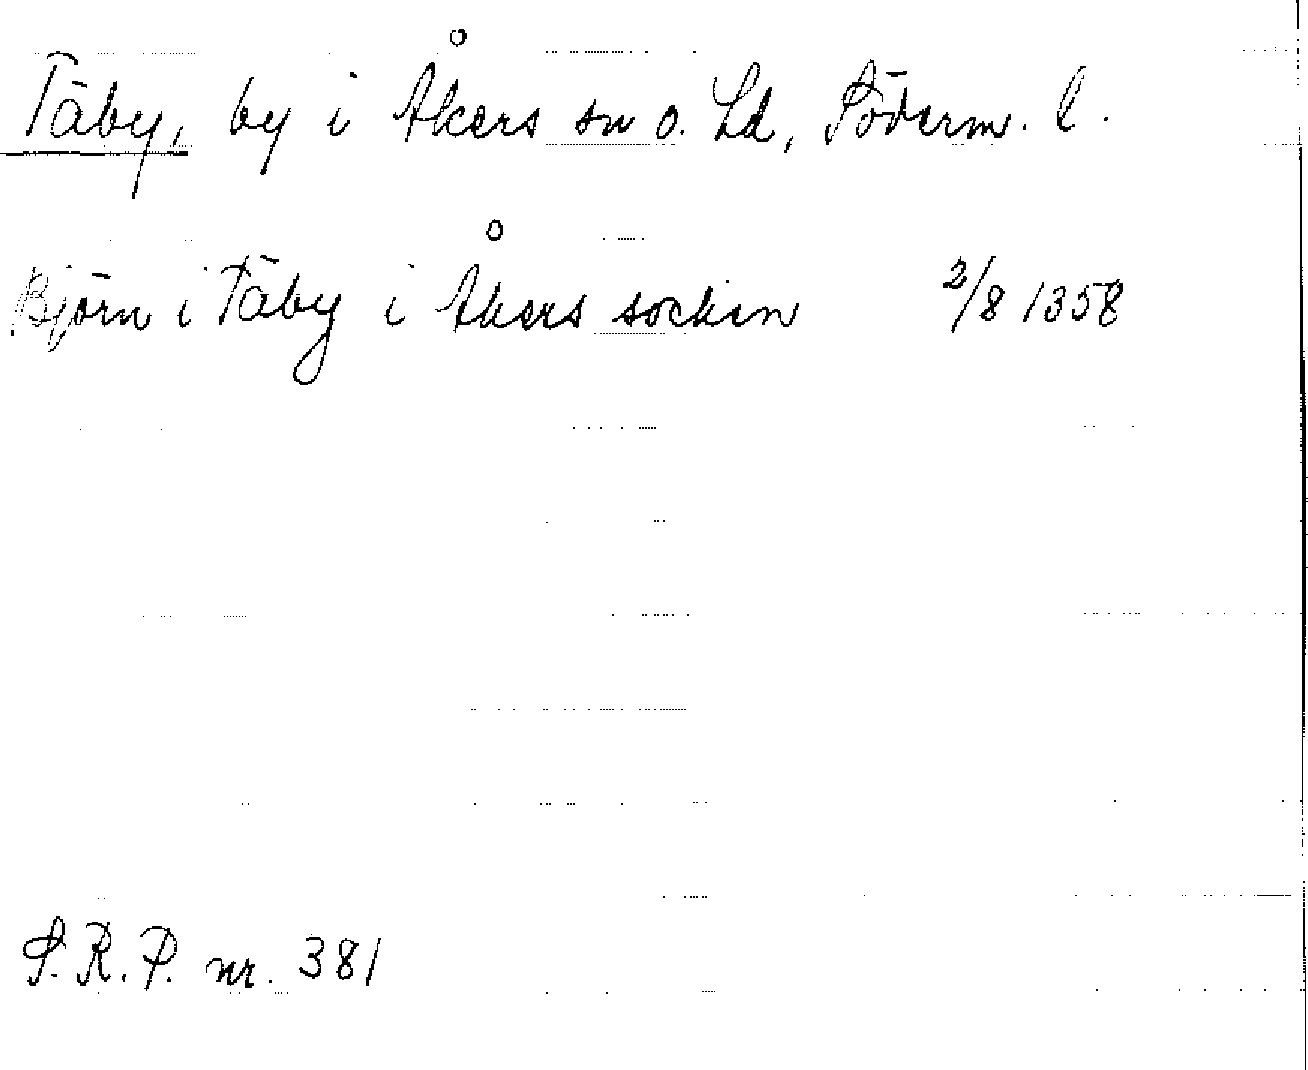 Täby, by i Åkers sn o. Ld, Söderm. l.
Björn i Täby i Åkers socken 2/8 1358
S.R.P. nr. 381